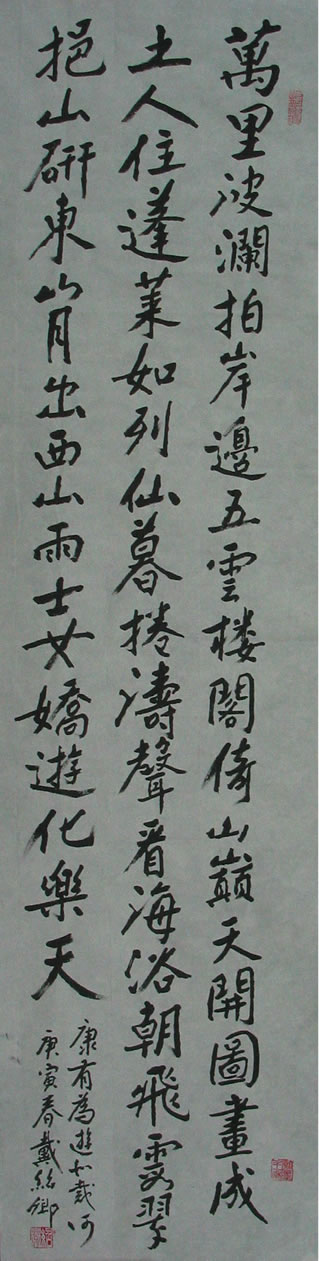 萬里波瀾拍岸邊五雲楼閣倚山巔天開圖畫成
土人住蓬莱如列仙暮捲濤聲看海浴朝飛霞翠
挹山研東山月出西山雨士女嬌遊化樂天
康有為遊北戴河
庚寅春戴絲鄉